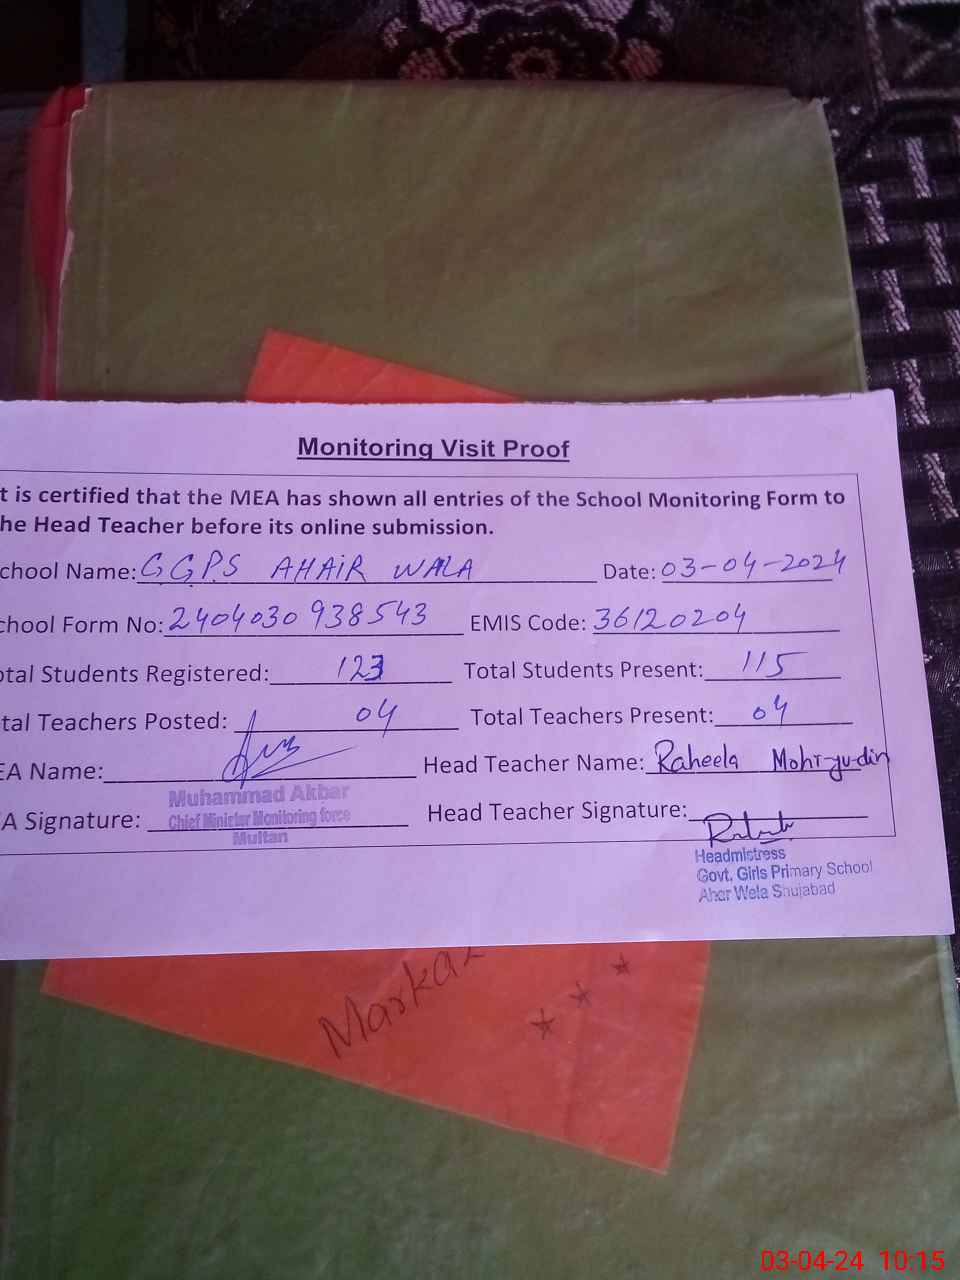 Monitoring Visit Proof
t is certified that the MEA has shown all entries of the School Monitoring Form to
he Head Teacher before its online submission.
chool Name: GGPS AHAIR WALA Date: 03-04-2024
chool Form No: 2404030938543 EMIS Code: 36120204
otal Students Registered: 123 Total Students Present: 115
tal Teachers Posted: 04 Total Teachers Present: 04
EA Name: Head Teacher Name: Raheela Mohi-yu-din
Muhammad Akbar
A Signature: Chief Minister Monitoring force Head Teacher Signature:
Multan
Headmistress
Govt. Girls Primary School
Aher Wela Shujabad
Markaz
03-04-24 10:15